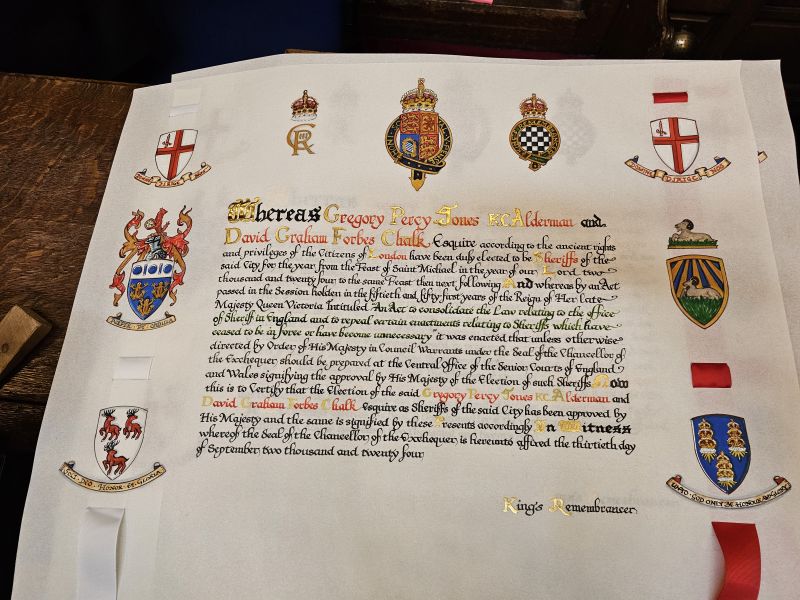 DOMINE DIRIGE NOS
CR III
DOMINE DIRIGE NOS
Whereas Gregory Percy Jones KC Alderman and
David Graham Forbes Chalk Esquire according to the ancient rights
and privileges of the Citizens of London have been duly elected to be Sheriffs of the
said City for the year from the Feast of Saint Michael in the year of our Lord two
thousand and twenty four to the same Feast then next following And whereas by an Act
passed in the Session holden in the fiftieth and fifty first years of the Reign of Her late
Majesty Queen Victoria Intituled "An Act to consolidate the Law relating to the office
of Sheriff in England and to repeal certain enactments relating to Sheriffs which have
ceased to be in force or have become unnecessary" it was enacted that unless otherwise
directed by Order of His Majesty in Council Warrants under the Seal of the Chancellor of
the Exchequer should be prepared at the Central Office of the Senior Courts of England
and Wales signifying the approval by His Majesty of the Election of such Sheriffs Now
this is to Certify that the Election of the said Gregory Percy Jones KC Alderman and
David Graham Forbes Chalk Esquire as Sheriffs of the said City has been approved by
His Majesty and the same is signified by these Presents accordingly In Witness
whereof the Seal of the Chancellor of the Exchequer is hereunto affixed the thirtieth day
of September two thousand and twenty four
HONOR ET GLORIA
UNTO GOD ONLY BE HONOUR AND GLORY
King's Remembrancer